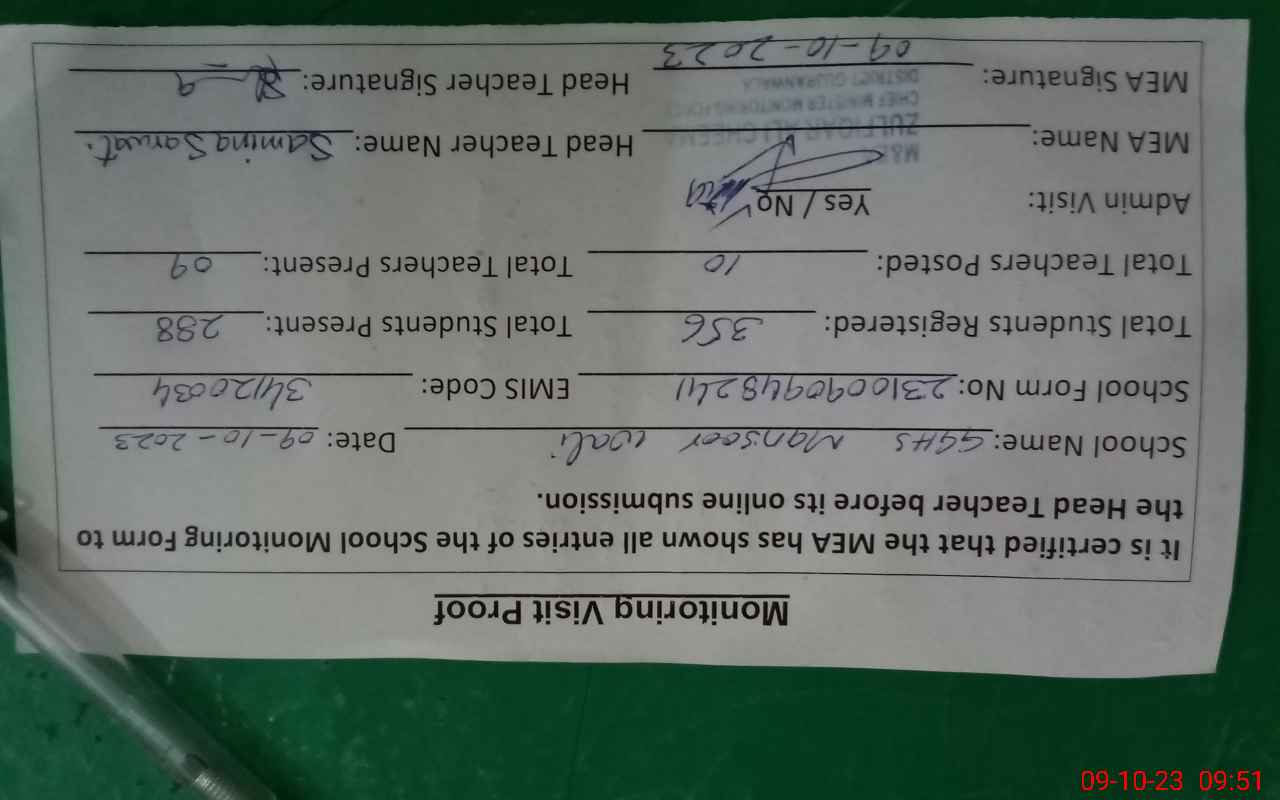 Monitoring Visit Proof
It is certified that the MEA has shown all entries of the School Monitoring Form to
the Head Teacher before its online submission.
School Name: GGHS Mansoor wali Date: 09-10-2023
School Form No: 2310090948241 EMIS Code: 34120034
Total Students Registered: 356 Total Students Present: 288
Total Teachers Posted: 10 Total Teachers Present: 09
Admin Visit: Yes / No
MEA Name: ZULFIQAR ALI CHEEMA Head Teacher Name: Samina Sarwat.
CHIEF MINISTER MONITORING FORCE
DISTRICT GUJRANWALA
MEA Signature: 09-10-2023 Head Teacher Signature:
09-10-23 09:51